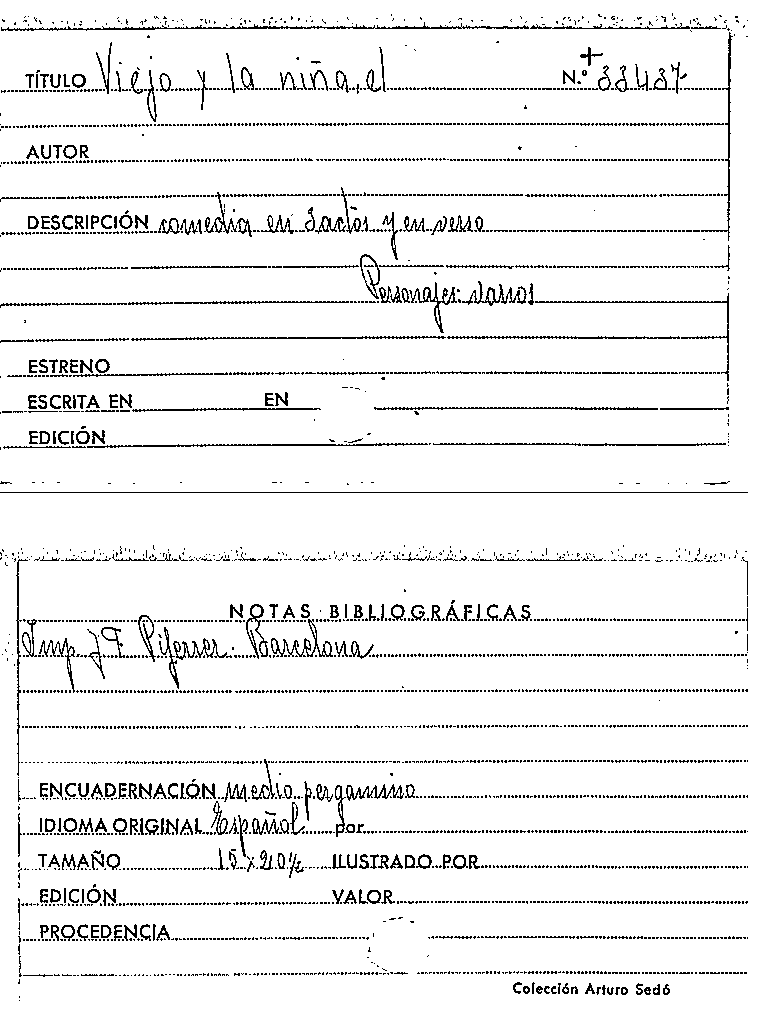 TÍTULO Viejo y la niña, el N.º + 33437
AUTOR
DESCRIPCIÓN comedia en 3 actos y en verso
Personajes: varios
ESTRENO
ESCRITA EN EN
EDICIÓN
NOTAS BIBLIOGRÁFICAS
Imp. J F Piferrer. Barcelona
ENCUADERNACIÓN medio pergamino
IDIOMA ORIGINAL Español por
TAMAÑO 15 x 20½ ILUSTRADO POR
EDICIÓN VALOR
PROCEDENCIA
Colección Arturo Sedó